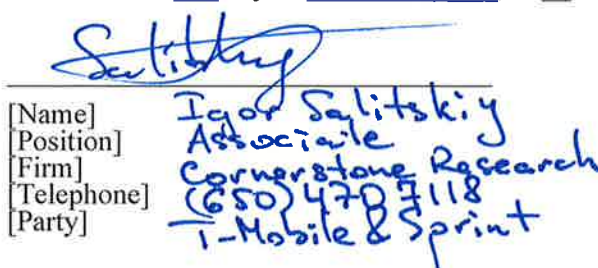 Salitskiy
[Name] Igor Salitskiy
[Position] Associate
[Firm] Cornerstone Research
[Telephone] (650) 470 7118
[Party] T-Mobile & Sprint